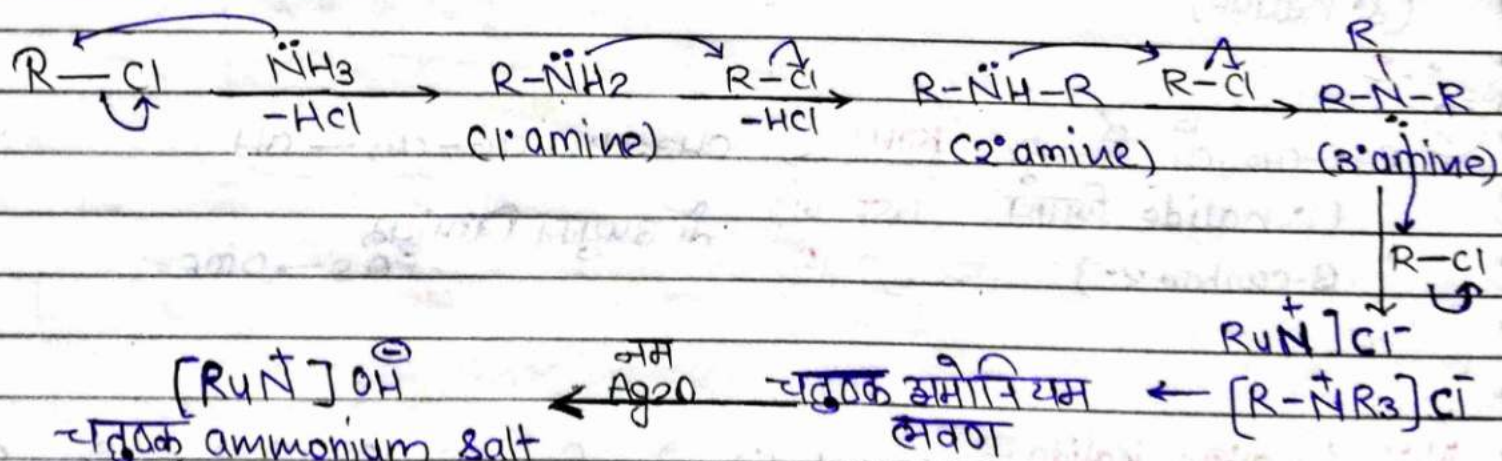 R—Cl N̈H3 -HCl → R-N̈H2 R-Cl -HCl → R-N̈H-R R-Cl → R-N-R
R
(1° amine) (2° amine) (3° amine)
R-Cl
RuN⁺]Cl⁻
[RuN⁺]OH⊖ ← नम Ag2O चतुष्क अमोनियम लवण ← [R-N⁺R3]Cl⁻
चतुष्क ammonium salt